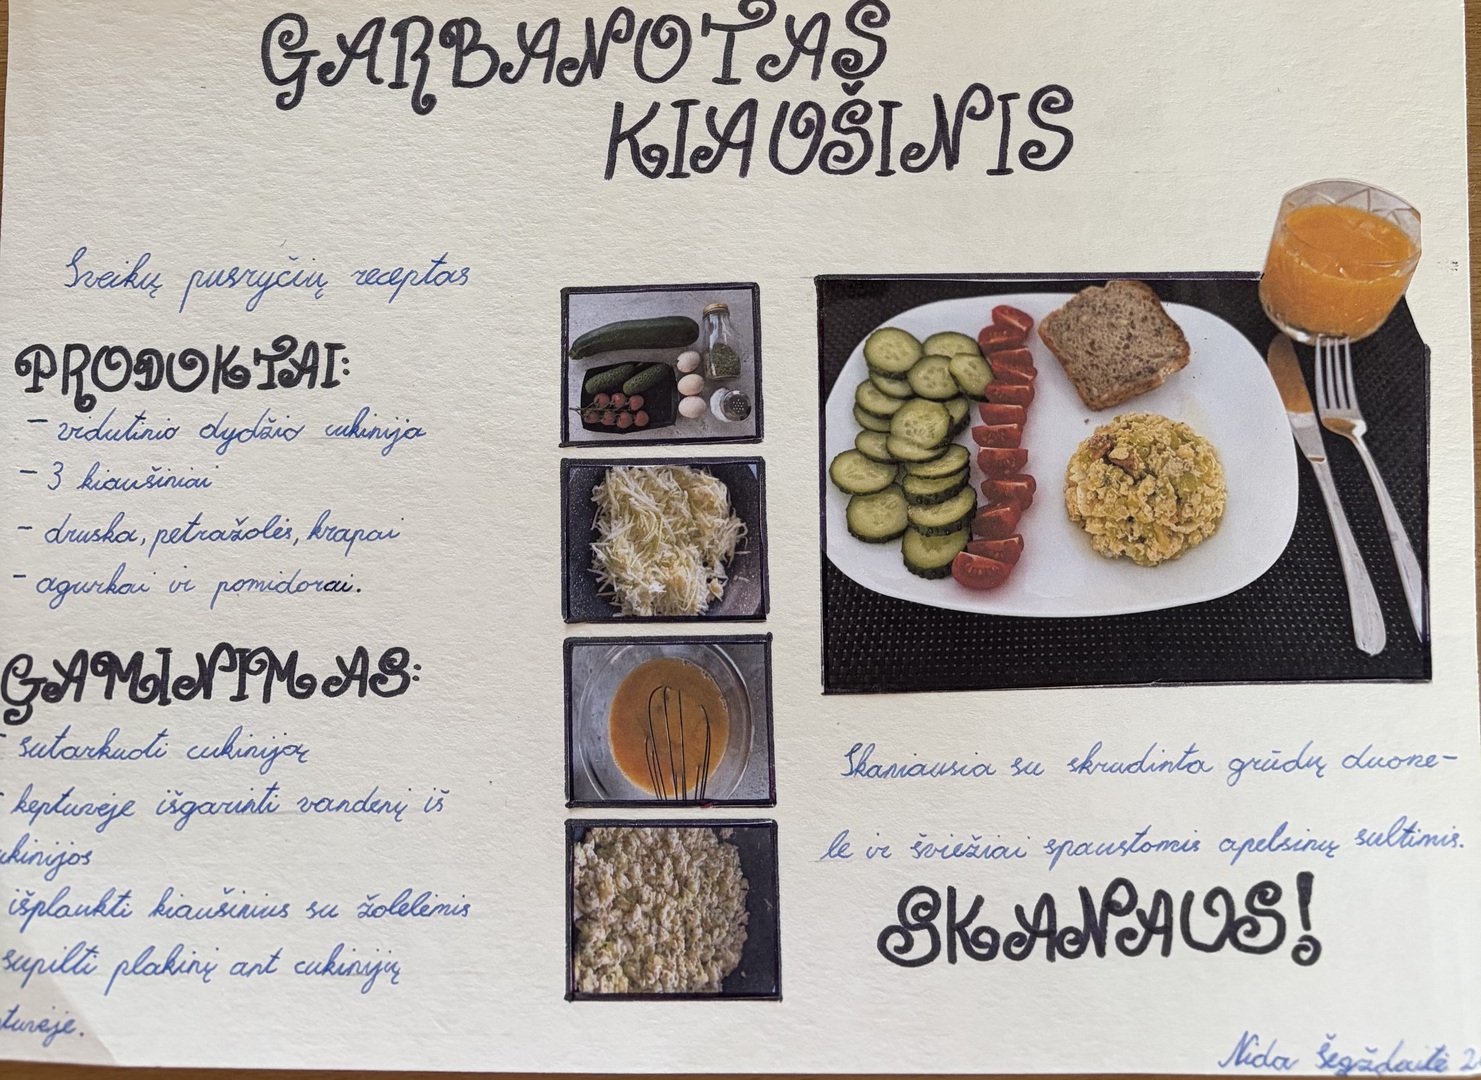 GARBANOTAS
KIAUŠINIS
Sveikų pusryčių receptas
PRODUKTAI:
- vidutinio dydžio cukinija
- 3 kiaušiniai
- druska, petražolės, krapai
- agurkai ir pomidorai.
GAMINIMAS:
- sutarkuoti cukiniją
- keptuvėje išgarinti vandenį iš
ukinijos
išplaukti kiaušinius su žolelėmis
supilti plakinį ant cukinijų
tuvėje.
Skaniausia su skrudinta grūdų duone-
le ir šviežiai spaustomis apelsinų sultimis.
SKANAUS!
Nida Šegždaitė 2